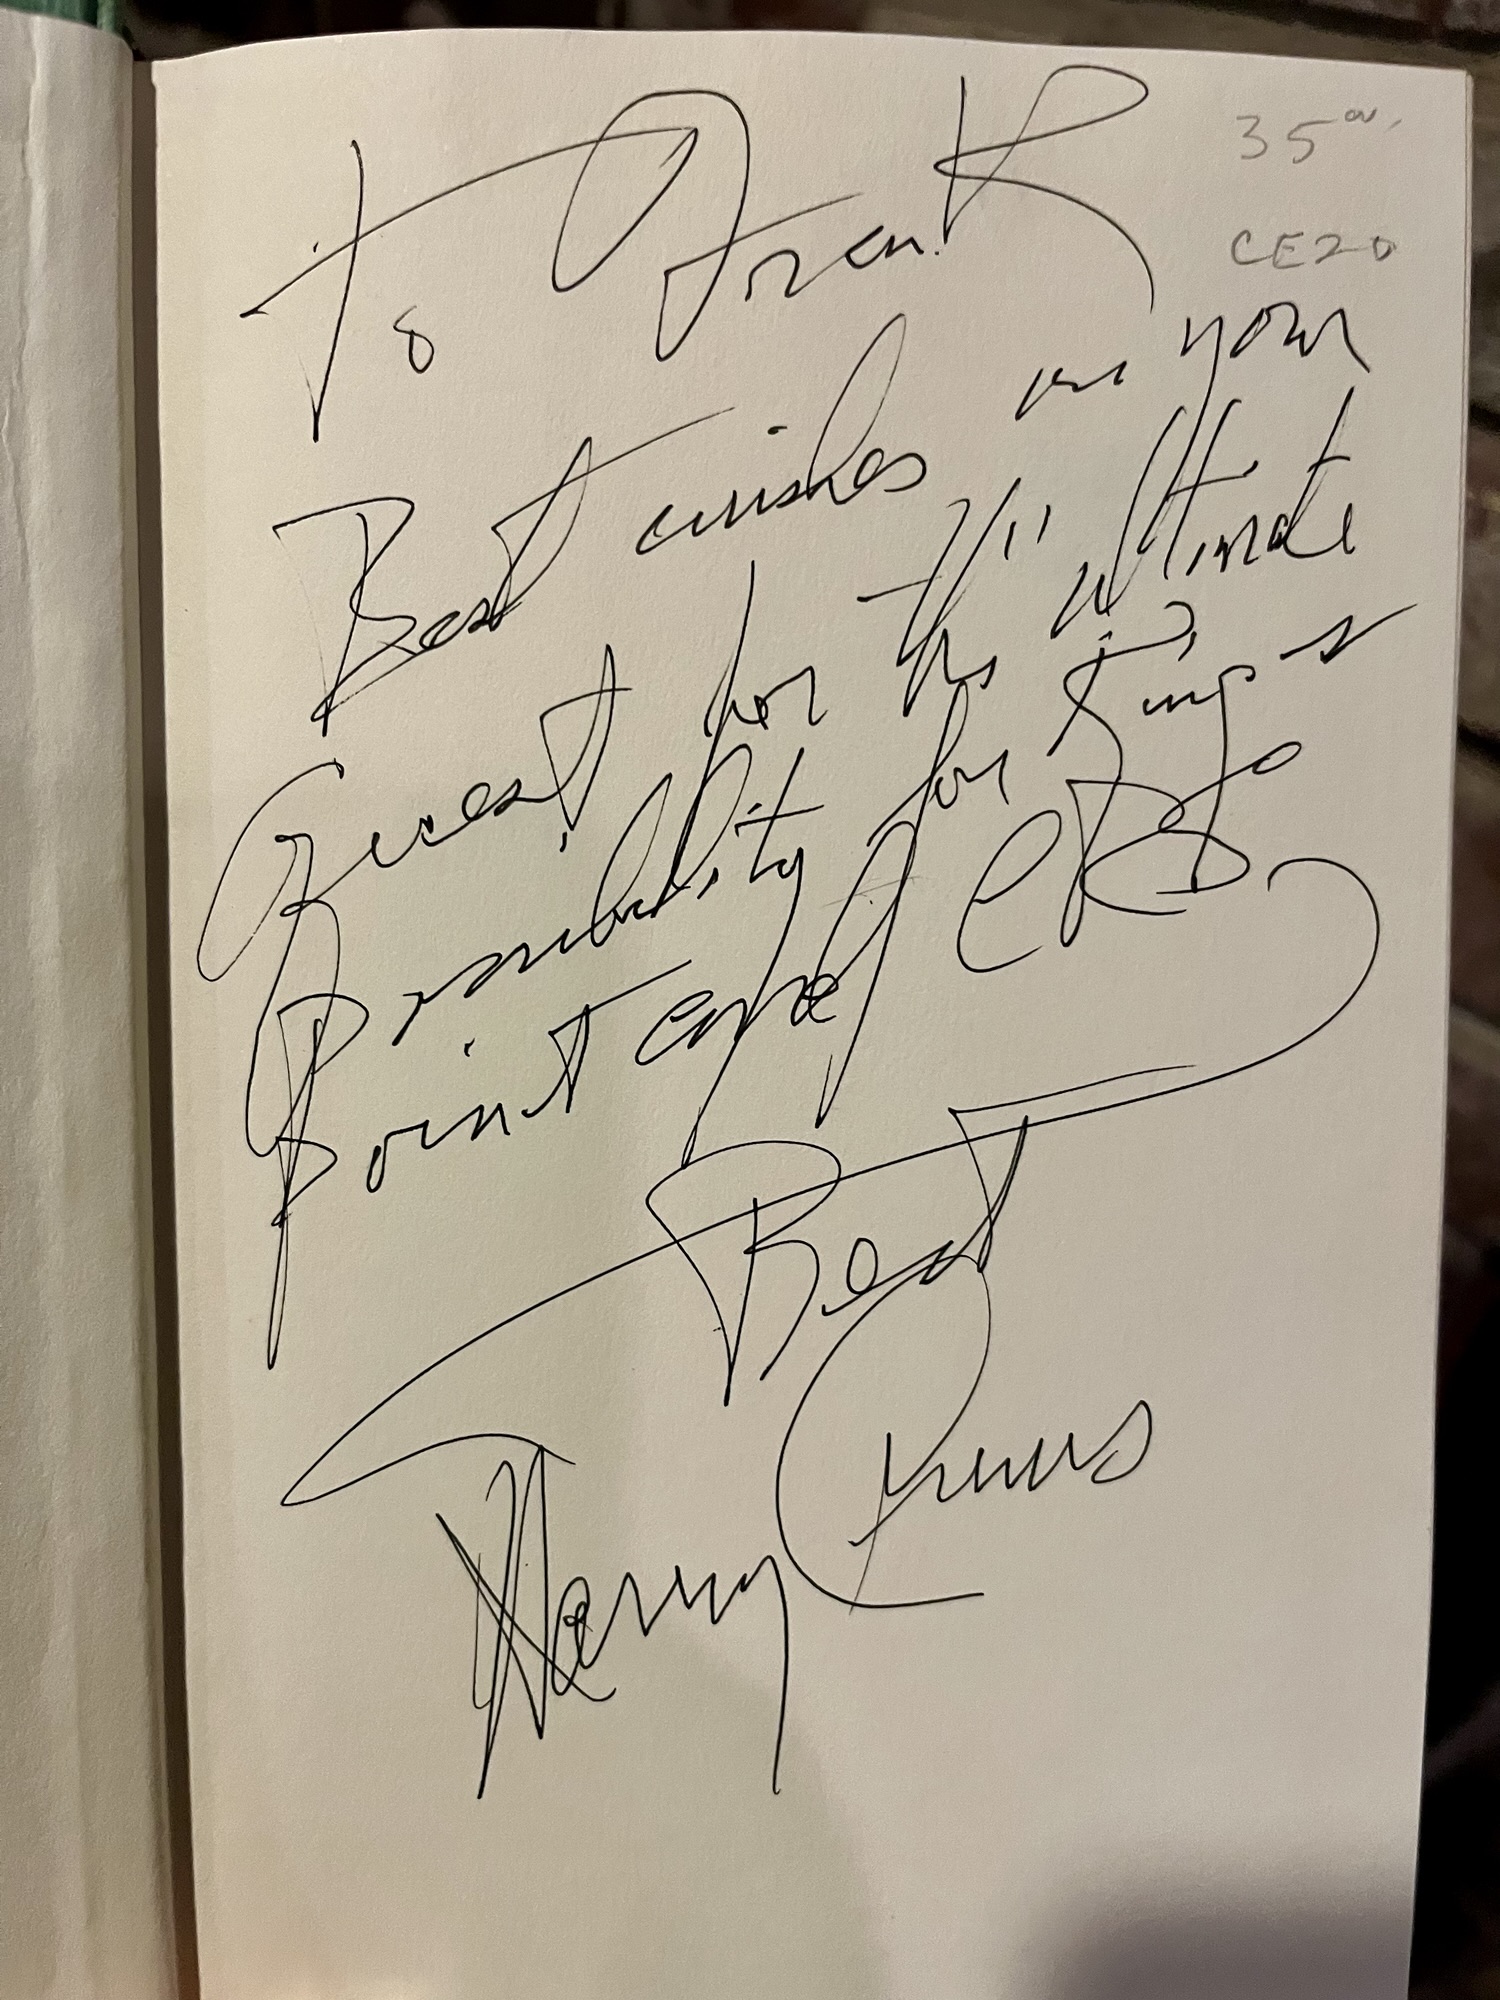 To Frank
35
CE20
Best wishes in your
Quest for the ultimate
Possibility for Kings
Point and
Best
Harry Crews